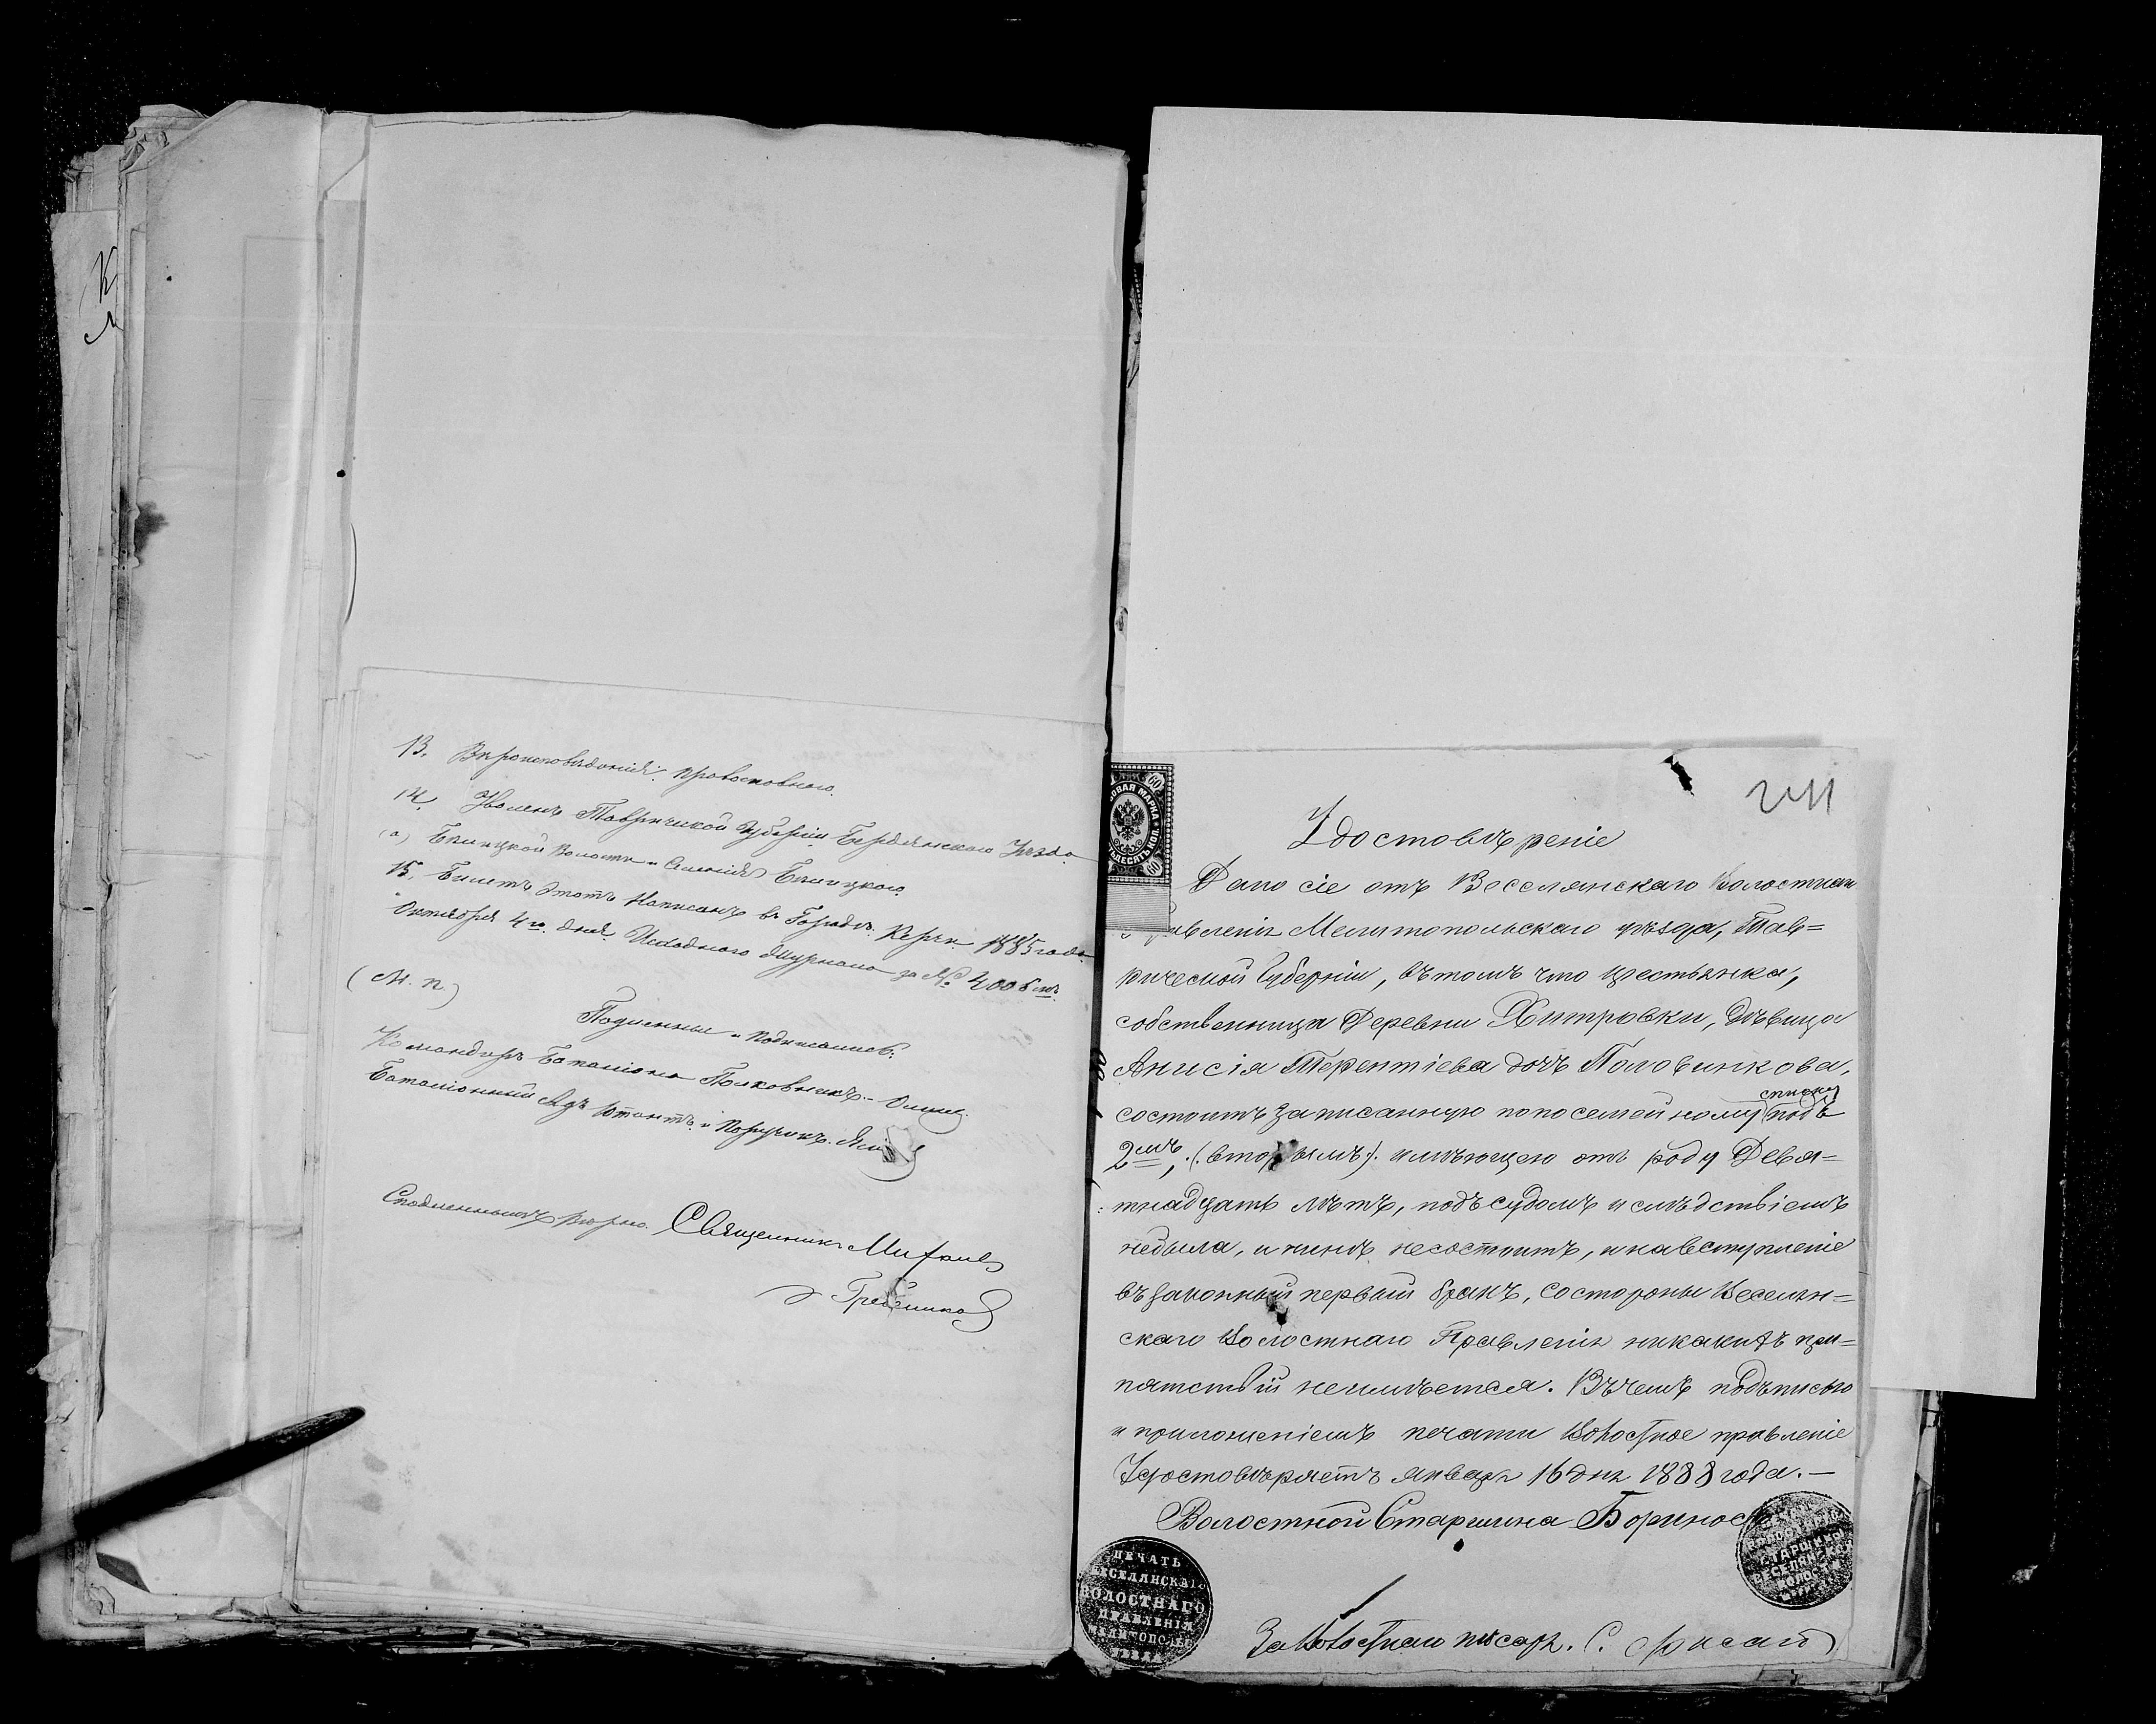 13. Вѣроисповѣданія Православнаго.
14. Уволенъ Таврической Губерніи Бердянскаго Уѣзда
(а)
15. Билетъ этотъ Написанъ въ Городѣ Керчи 1885 года
Октября 4го дня. Исходнаго Журнала за №
(М. п.)
Подлинный подписалъ:
Командиръ Баталіона Полковникъ
Баталіонный Адъютантъ Поручикъ
Съ подлиннымъ вѣрно: Священникъ Михаилъ
Гребенников
241
Удостовѣреніе
Дано сіе отъ Веселянскаго Волостнаго
Правленія Мелитопольскаго уѣзда, Тав=
рической Губерніи, въ томъ что крестьянка,
собственница Деревни Хитровки, дѣвица
Анисія Терентіева дочь Половинкова,
списку
состоитъ записанную по посемейному подъ
2мъ, (вторымъ). имѣющею отъ роду Девят=
тнадцать лѣтъ, подъ судомъ и слѣдствіемъ
небыла, и нынѣ несостоитъ, и на вступленіе
въ законный первый бракъ, со стороны Веселян=
скаго Волостнаго Правленія никакихъ пре=
пятствій неимѣется. Въ чемъ подписью
и приложеніемъ печати Волостное правленіе
Удостовѣряетъ января 16 дня 1888 года.—
Волостной Старшина
ПЕЧАТЬ
ВЕСЕЛЯНСКАГО
ВОЛОСТНАГО
ПРАВЛЕНІЯ
МЕЛИТОПОЛЬ
СТАРШИНЫ
ВЕСЕЛЯНСКОЙ
ВОЛОС
За Волостнаго писаря. С.
60
МАРКА
60